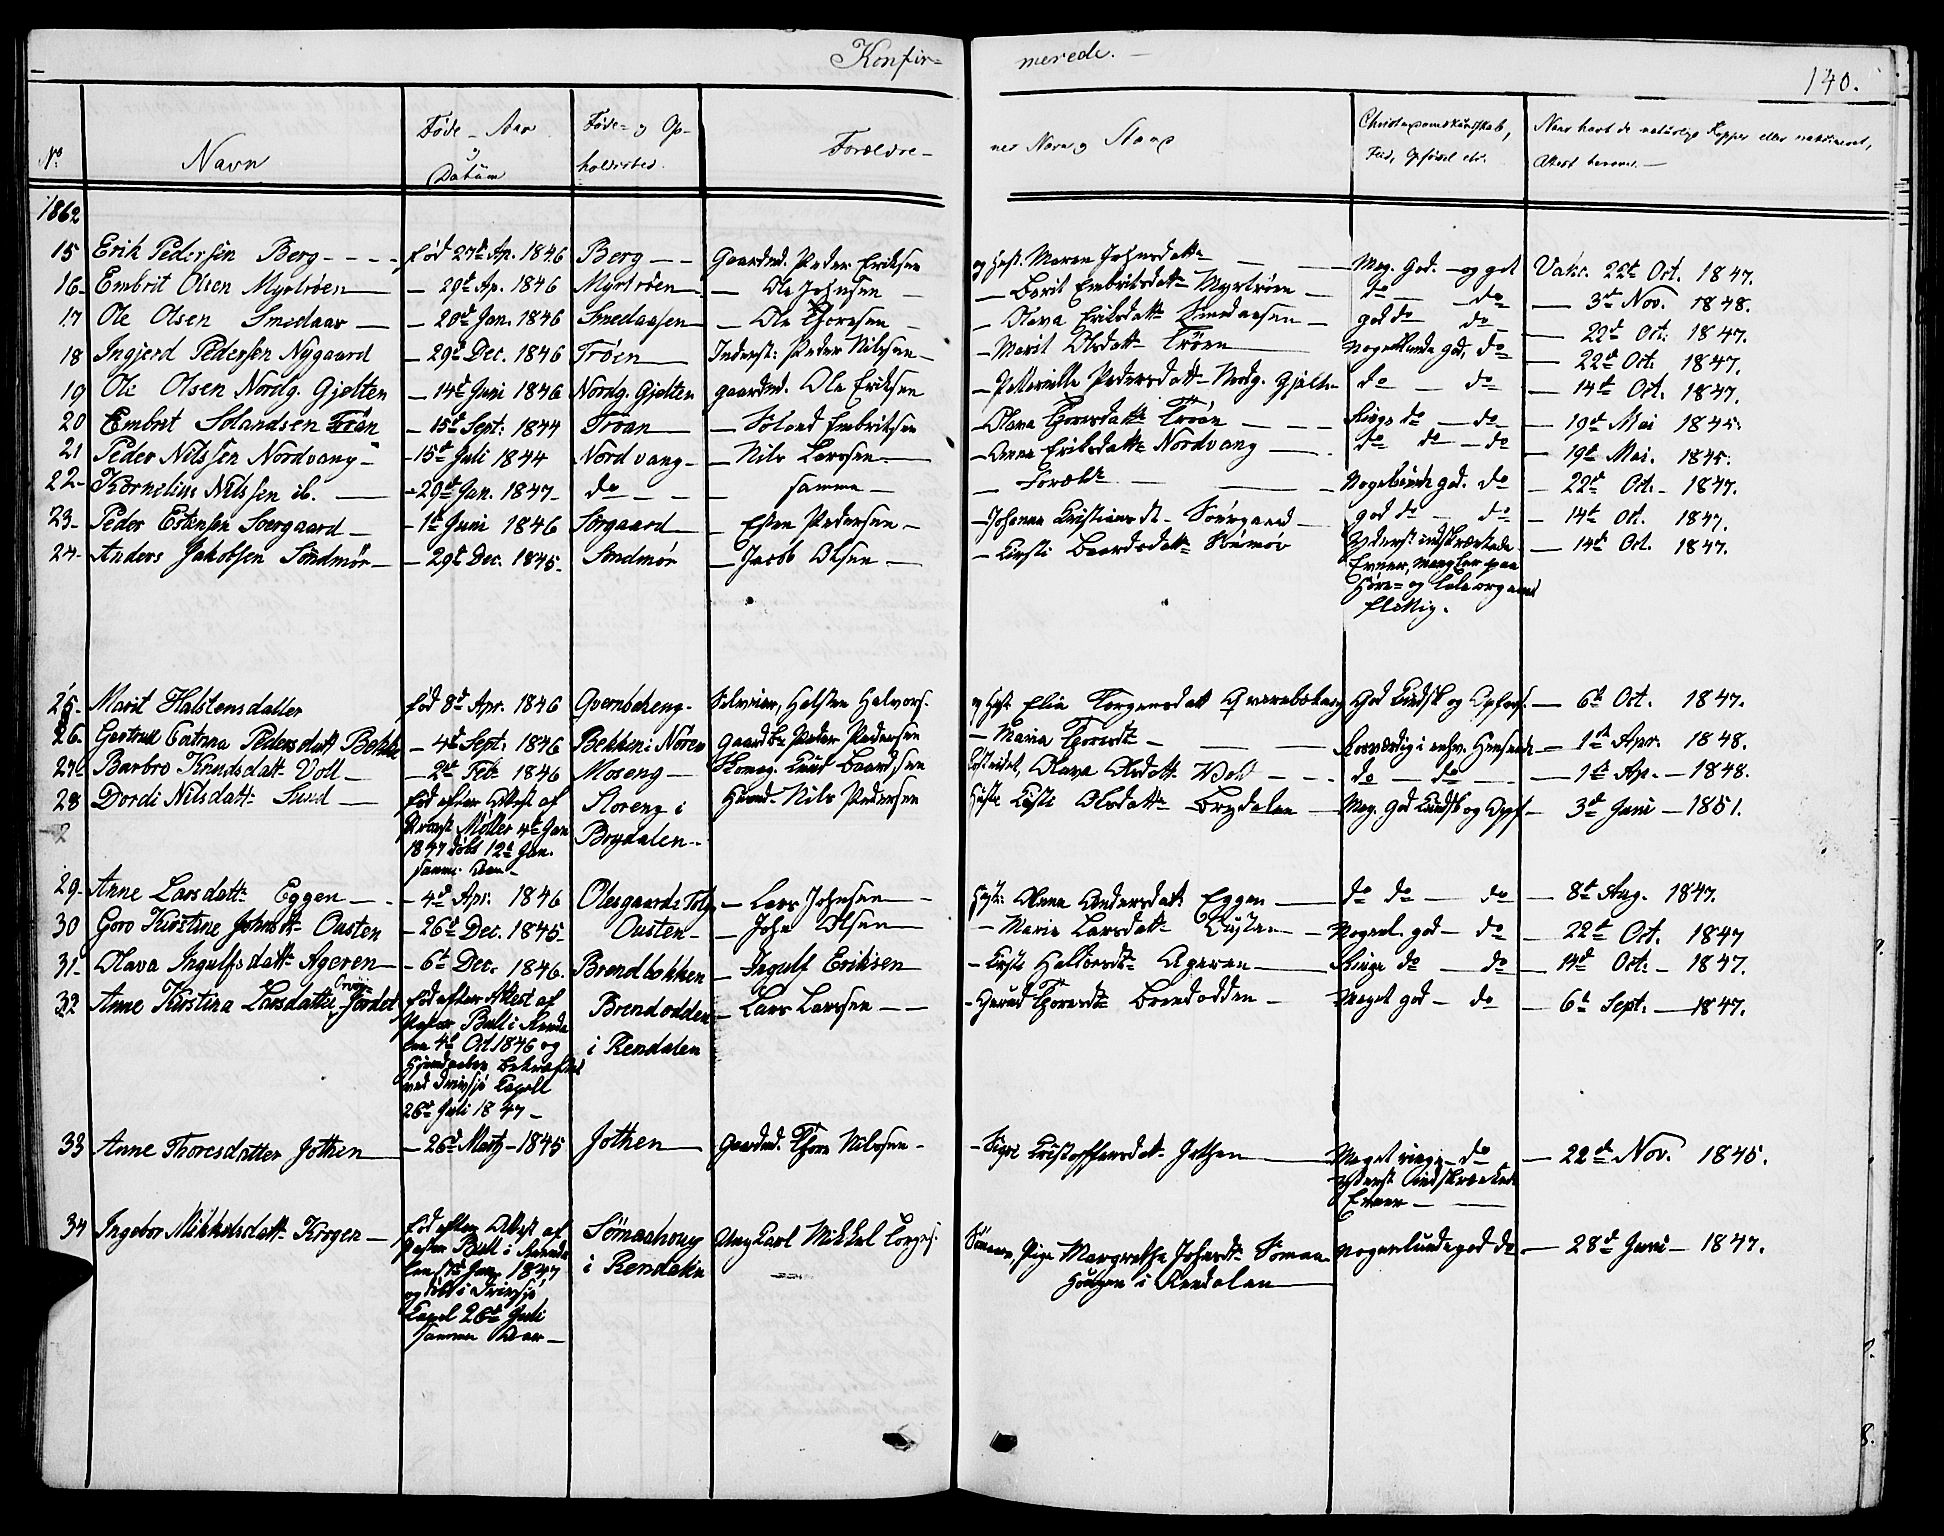 Konfirmerede. —
140.
No Navn Føde- Aar og Datum Føde- og Opholdssted Forældrenes Navn og Stand Christendomskundskab, Flid, Opførsel etc. Naar havt de naturlige Kopper eller vaccineret, Attest herover. —
1862
15 Erik Pedersen Berg - - - - fød 27de Ap. 1846 Berg — — Gaardmd. Peder Eriksen og Hust. Maren Johnsdatt — — Meg. God. — og god Vakc. 22de Oct. 1847.
16 Embrit Olsen Myrtrøen — — 29de Ap. 1846 Myrtrøen — — Ole Johnsen — — Berit Embritsdatt Myrtrøen — do — do — 3de Nov. 1848.
17 Ole Olsen Smedaas — — 20de Jan. 1846 Smedaasen — — Ole Thoresen — — Olava Eriksdatt Smedaasen — god do do — 22de Oct. 1847.
18 Ingjerd Pedersen Nygaard — 29de Dec. 1846 Trøen — Inderst: Peder Nilssen — — Marit Olsdatt Trøen — Nogenlunde god, do — 22de Oct. 1847.
19 Ole Olsen Nordg. Gjelten — 14de Juni 1846 Nordg. Gjelten gaardmd. Ole Eriksen — Pedersdatt Nordg. Gjelten do — do — 14de Oct. 1847.
20 Embret Solandsen Troan — 15de Sept: 1844 Troan — — Soland Embritsen — Olava Thoresdatt Troen — — Ringe do — do — 19de Mai 1845.
21 Peder Nilssen Nordvang — — 15de Juli 1844 Nordvang — — Nils Larssen — — Anne Eriksdatt Nordvang — do do — do — 19de Mai. 1845.
22 Kornelius Nilssen ib. — — 29de Jan. 1847 — do — — — samme — — Foræld. — — Nogenlunde god. do — 22de Oct. — 1847.
23 Peder Estensen Soergaard — — 1de Juni 1846 Sørgaard — — Esten Pedersen — — Johanna Kristiansdt. Søergaard — god do — do — 14de Oct. 1847.
24 Anders Jakobsen Sondmør — — 29de Dec. 1845 — Sondmør — Jacob Olsen — — Kirsti Baardsdatt Sømør Yderst indskrænkede Evner, mangler paa Høre- og Taleorganet flittig. — 14de Oct. 1847.
25 Marit Halstensdatter fød 8de Apr. 1846 Qvernbekeng. Halsten Halvors. og Hust Elie Torgersdatt Qvernbekeng God Kundsk og Opførs. — 6te Oct. 1847.
26 Gjertrud Pedersdatt Bekken — 4de Sept: 1846 Bekken i Nören Gaardbr. Peder Pedersen — Maria Thoresdt — — — Rosværdig i enhv. Henseende — 1de Apr. 1848.
27 Barbro Knudsdatt Voll — — 2de Feb. 1846 Moseng — Skomag. Knud Baardsen Olava Olsdatt Voll — — do — do — — 1de Ap. — 1848.
28 Dordi Nilsdatt Lund — fød efter Attest af Provst Møller 4de Jan 1847 døbt 12te Jan. samme Aar — Storeng i Brydalen — Nils Pedersen Hustr Kirsti Olsdatt Brydalen — Meg. God Kundsk og Opf. — 3de Juni — 1851.
29 Anne Larsdatt Eggen — — 4de Apr. 1846 Olesgaarde Tolg. — Lars Johnsen — Hust: Anna Andersdatt Eggen — do do — do — 8de Aug. 1847.
30 Goro Kirstine Johnsdt Ousten — 26de Dec. 1845 — Ousten — — John Olsen — — Marie Larsdatt Ousten — Nogenl. god — do — 22de Oct. 1847
31 Olava Ingulfsdatt Ageren — — 6te Dec. 1846. Brendbekken — Ingulf Eriksen — Kirsti Halvorsdt Ageren — Ringe do — do — 14de Oct. — 1847.
32 Anne Kirstina Larsdatter Jordet fød efter Attest af Pastor Bull i Rendalen 4de Oct 1846 og Hjemmedaaben bekræftet ved Drivsjø Capell 26de Juli 1847 — Brendodden i Rendalen — Lars Larssen — — — Thoresdt Brendodden — Meget god — do — 6te Sept: — 1847.
33 Anne Thoresdatter Jothen — — 26de Marts — 1845 Jothen — Gaardmd. Thore Nilssen — — Sigri Kristoffersdatt Jothen — Meget ringe — do yderst indskrænkede Evner — — 22de Nov. 1845.
34 Ingebor Mikkelsdatt Krogen — fød efter Attest af Pastor Bull i Rendalen 17de Jan. 1847 og døbt i Drivsjø Capel 26de Juli samme Aar — Sømaahoug i Rendalen Ung Karl Mikkel Torgers. Pige Margrethe Johnsdt Sømaahougen i Rendalen — Nogenlunde god do — 28de Juni — 1847.